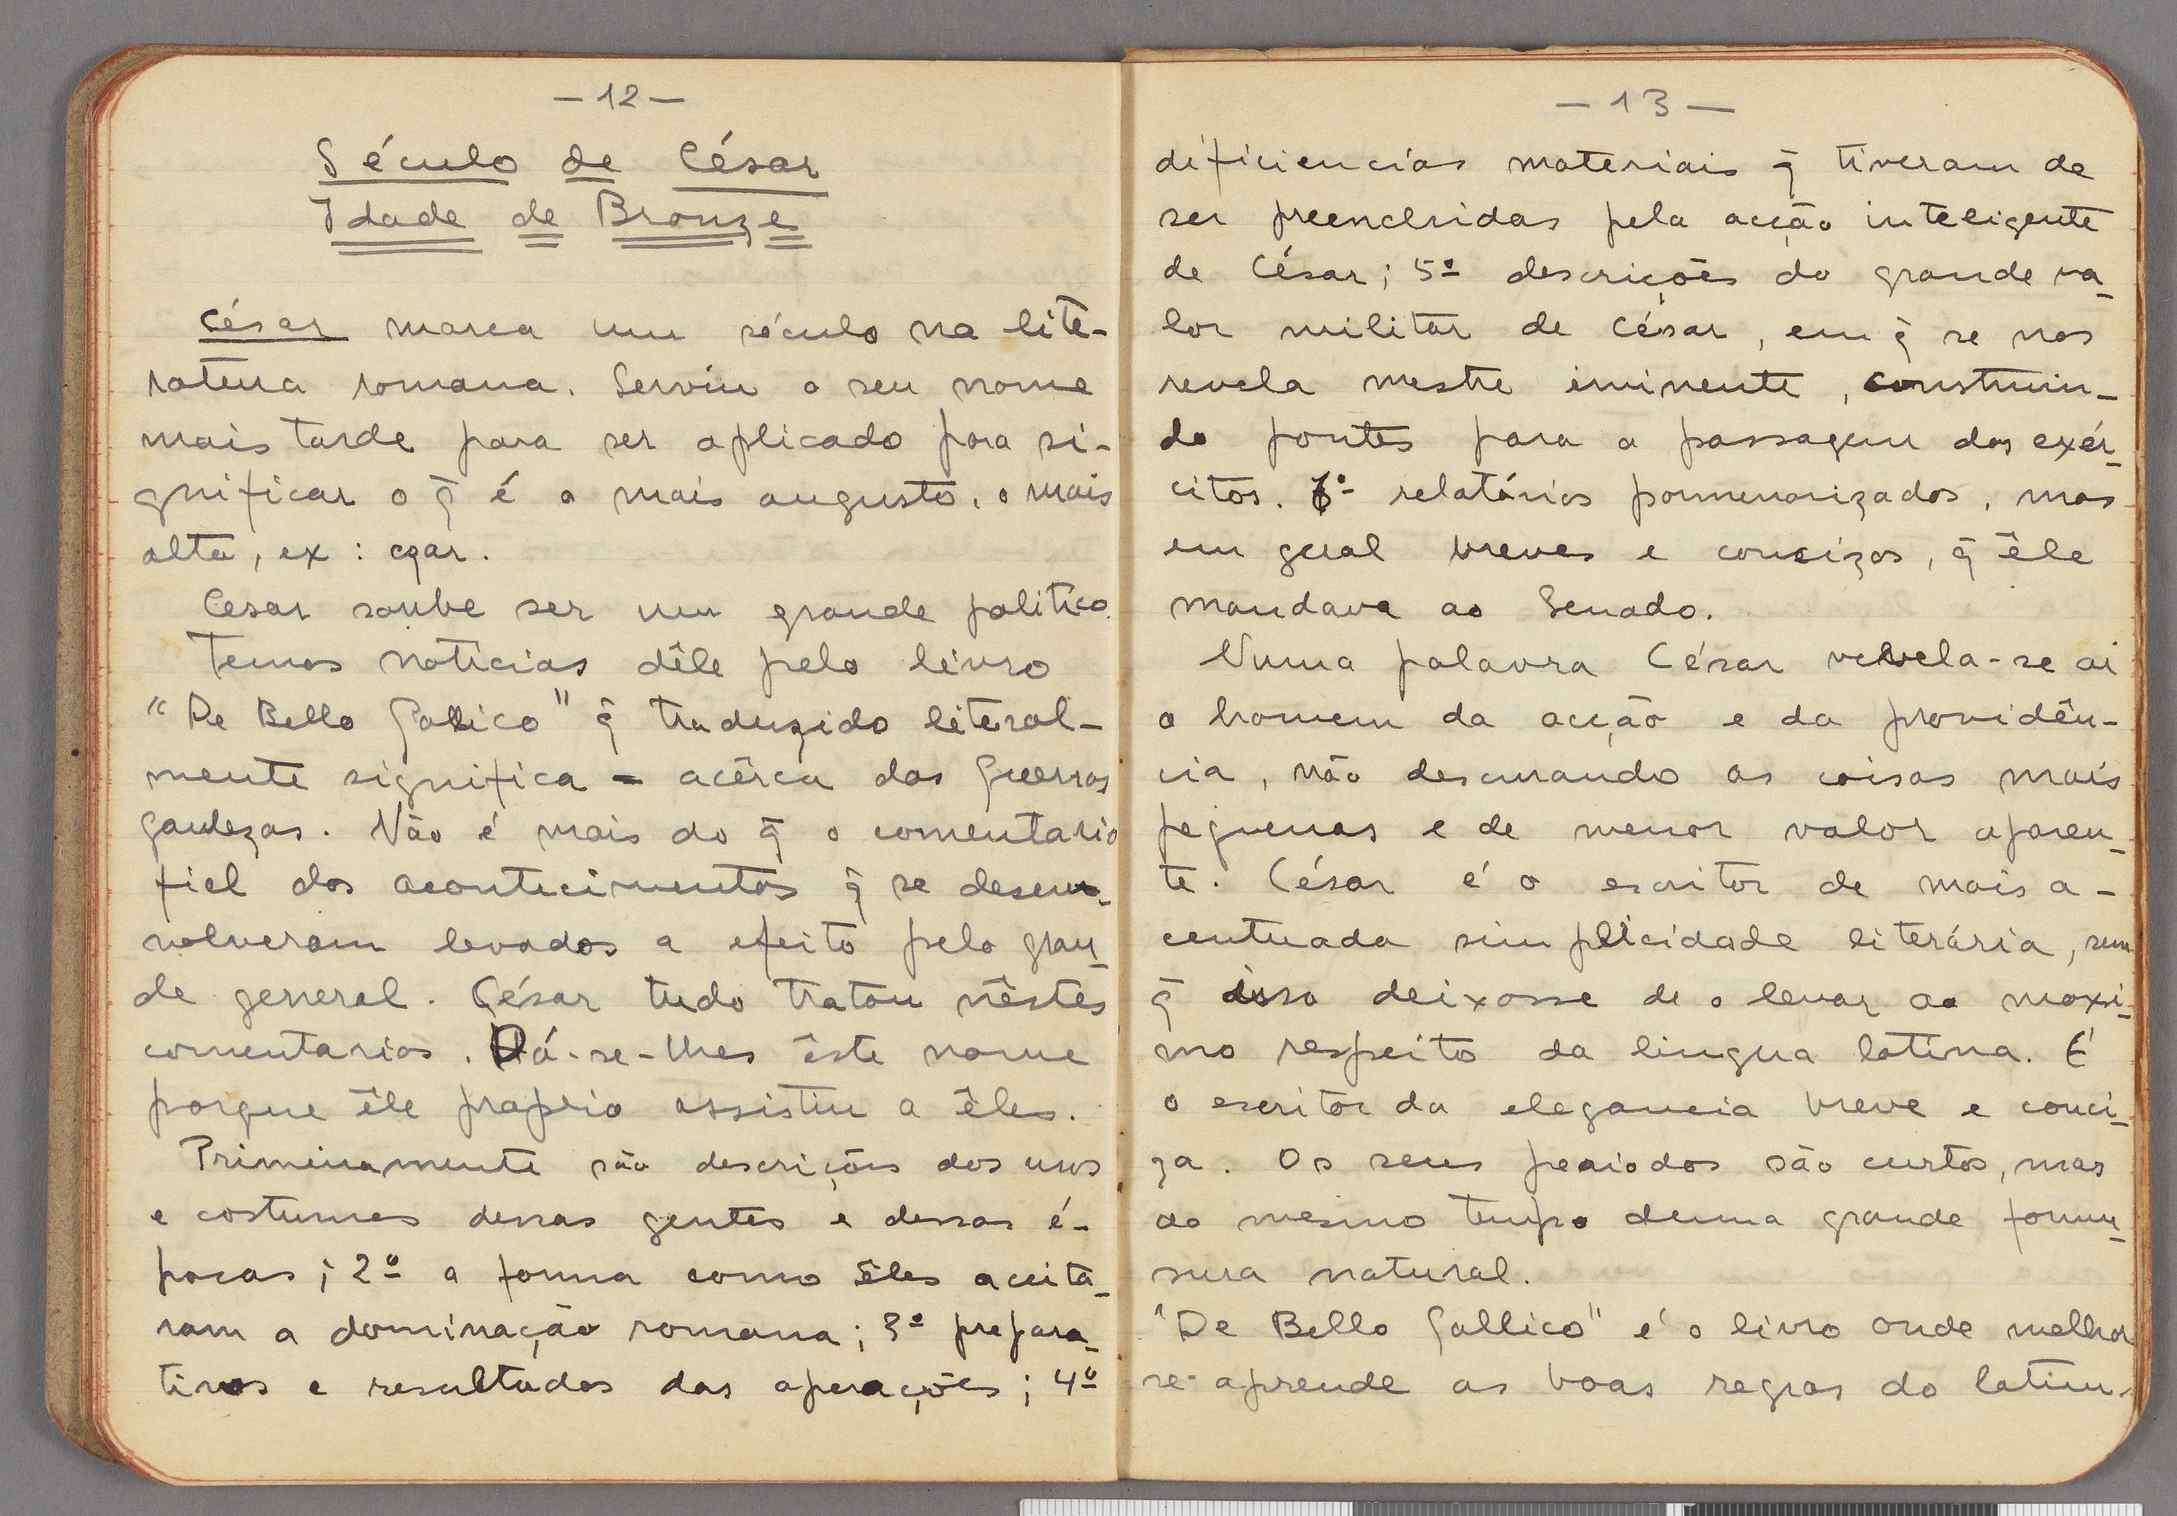 — 12 —
Século de César
Idade de Bronze
César marca um século na lite-
ratura romana. Serviu o seu nome
mais tarde para ser aplicado para si-
gnificar o q̃ é o mais augusto, o mais
alto, ex: czar.
Cesar soube ser um grande politico.
Temos noticias dêle pelo livro
"De Bello Gallico" q̃ traduzido literal-
mente significa = acêrca das Guerras
gaulezas. Não é mais do q̃ o comentario
fiel dos acontecimentos q̃ se desen-
volveram levados a efeito pelo gran-
de general. César tudo tratou nêstes
comentarios. Dá-se-lhes êste nome
porque êle proprio assistiu a êles.
Primeiramente são descrições dos usos
e costumes dessas gentes e dessas é-
pocas; 2º a forma como êles aceita-
ram a dominação romana; 3º prepara-
tivos e resultados das operações; 4º
— 13 —
dificiencias materiais q̃ tiveram de
ser preenchidas pela acção inteligente
de César; 5º descrições do grande va-
lor militar de César, em q̃ se nos
revela mestre iminente, construin-
do pontes para a passagem dos exér-
citos. 6º relatórios pormenorizados, mas
em geral breves e concizos, q̃ êle
mandava ao Senado.
Numa palavra César revela-se ai
o homem da acção e da providên-
cia, não descurando as coisas mais
pequenas e de menor valor aparen-
te. César é o escritor de mais a-
centuada simplicidade literária, sem
q̃ isso deixasse de o levar ao maxi-
mo respeito da lingua latina. É
o escritor da elegancia breve e conci-
za. Os seus periodos são curtos, mas
ao mesmo tempo duma grande formu-
sura natural.
"De Bello Gallico" é o livro onde melhor
se aprende as boas regras do latim.